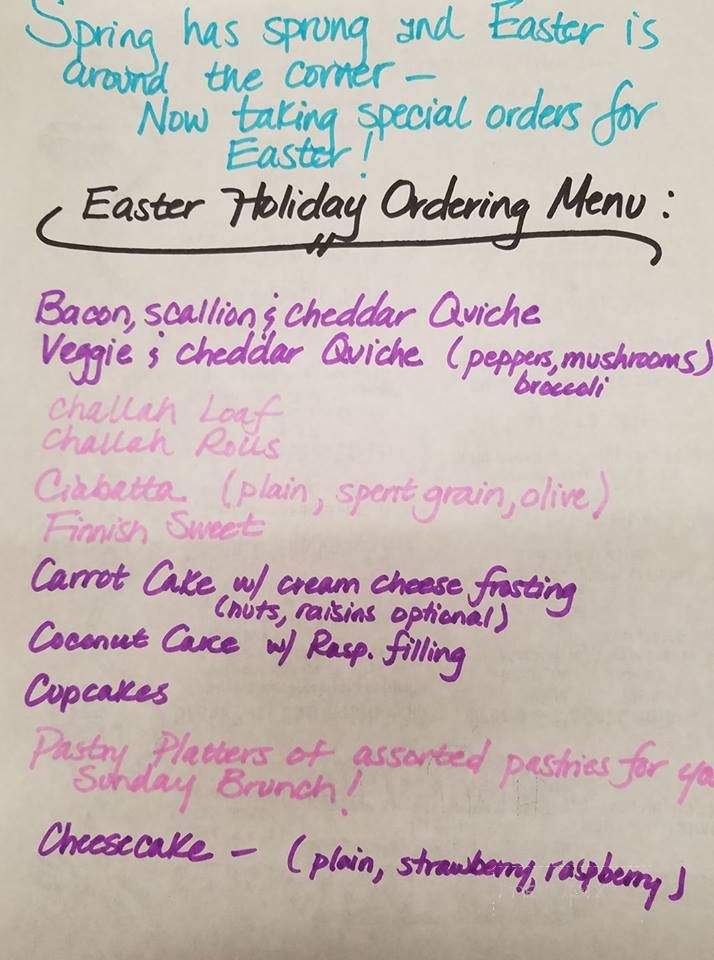 Spring has sprung and Easter is
around the corner –
Now taking special orders for
Easter!
Easter Holiday Ordering Menu:
Bacon, scallion & cheddar Quiche
Veggie & cheddar Quiche (peppers, mushrooms)
broccoli
Challah Loaf
Challah Rolls
Ciabatta (plain, spent grain, olive)
Finnish Sweet
Carrot Cake w/ cream cheese frosting
(nuts, raisins optional)
Coconut Cake w/ Rasp. filling
Cupcakes
Pastry Platters of assorted pastries for yo
Sunday Brunch!
Cheesecake – (plain, strawberry, raspberry)